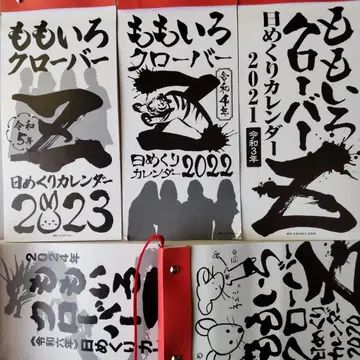 ももいろ
クローバー
Z
令和
5年
日めくりカレンダー
2023
ももいろ
クローバー
Z
令和4年
日めくり
カレンダー
2022
ももいろ
クローバー
Z
日めくりカレンダー
2021
令和3年
2024年
ももいろ
クローバー
《令和六年》日めくりカ
ももいろ
クローバー
Z
日めくりカ